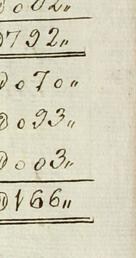 @002„
@792„
@070„
@093„
@003„
@166„